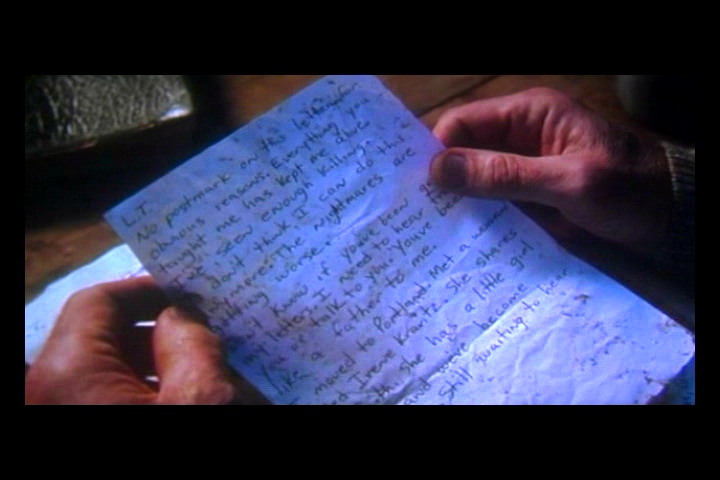 L.T.
No postmark on this letter for
obvious reasons. Everything you
taught me has kept me alive
I've seen enough killing.
I don't think I can do this
anymore. The nightmares are
getting worse.
know if you've been
my letters. I need to hear
talk to you. You've been
like a father to me.
I moved to Portland. Met a woman
named Irene Kravitz. She shares
She has a little girl
and we've become
still waiting to hear